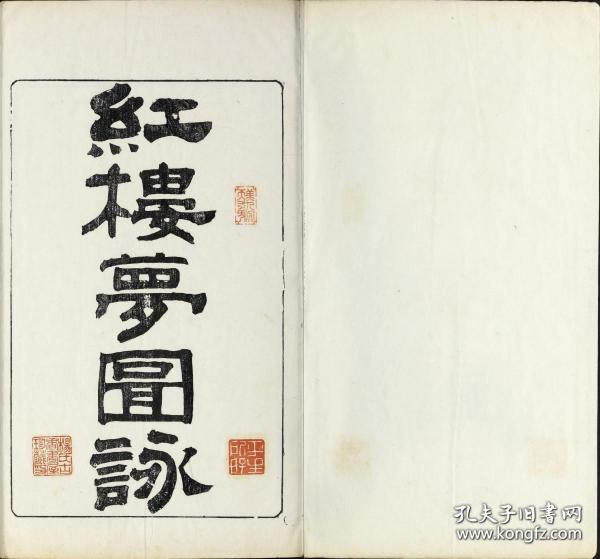 紅樓夢圖詠
孔夫子旧书网
www.kongfz.com